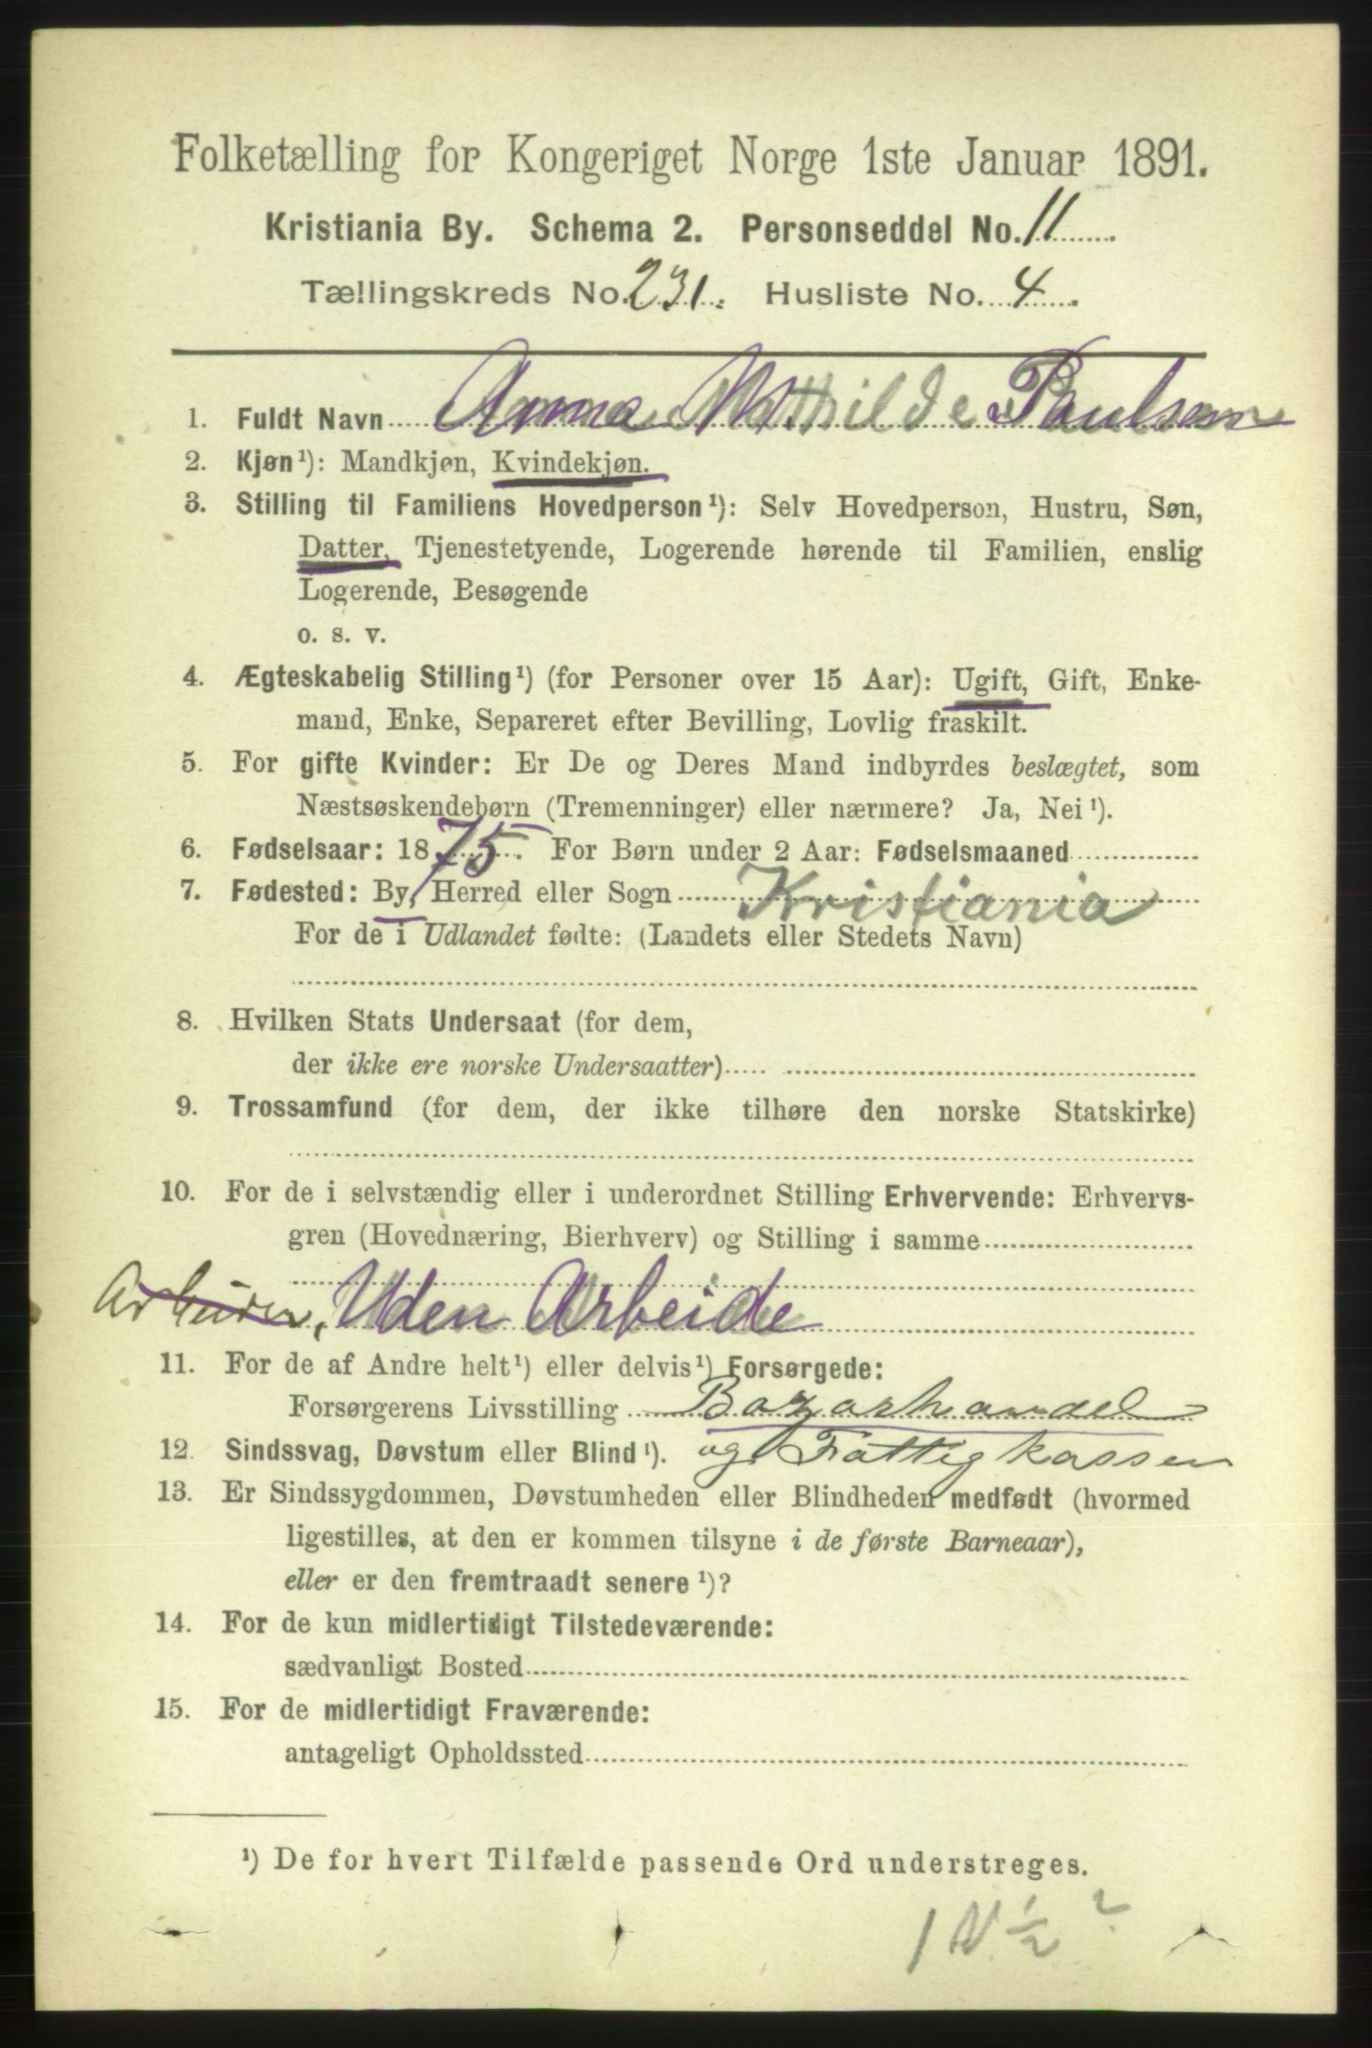 Folketælling for Kongeriget Norge 1ste Januar 1891.
Kristiania By. Schema 2. Personseddel No. 11
Tællingskreds No. 231. Husliste No. 4.
1. Fuldt Navn Anna Mathilde Paulsen
2. Kjøn¹): Mandkjøn, Kvindekjøn.
3. Stilling til Familiens Hovedperson¹): Selv Hovedperson, Hustru, Søn,
Datter, Tjenestetyende, Logerende hørende til Familien, enslig
Logerende, Besøgende
o. s. v.
4. Ægteskabelig Stilling¹) (for Personer over 15 Aar): Ugift, Gift, Enke-
mand, Enke, Separeret efter Bevilling, Lovlig fraskilt.
5. For gifte Kvinder: Er De og Deres Mand indbyrdes beslægtet, som
Næstsøskendebørn (Tremenninger) eller nærmere? Ja, Nei¹).
6. Fødselsaar: 1875. For Børn under 2 Aar: Fødselsmaaned
7. Fødested: By, Herred eller Sogn Kristiania
For de i Udlandet fødte: (Landets eller Stedets Navn)
8. Hvilken Stats Undersaat (for dem,
der ikke ere norske Undersaatter)
9. Trossamfund (for dem, der ikke tilhøre den norske Statskirke)
10. For de i selvstændig eller i underordnet Stilling Erhvervende: Erhvervs-
gren (Hovednæring, Bierhverv) og Stilling i samme
Uden Arbeide
11. For de af Andre helt¹) eller delvis¹) Forsørgede:
Forsørgerens Livsstilling Bazarhandel
12. Sindssvag, Døvstum eller Blind¹). og Fattigkassen
13. Er Sindssygdommen, Døvstumheden eller Blindheden medfødt (hvormed
ligestilles, at den er kommen tilsyne i de første Barneaar),
eller er den fremtraadt senere¹)?
14. For de kun midlertidigt Tilstedeværende:
sædvanligt Bosted
15. For de midlertidigt Fraværende:
antageligt Opholdssted
¹) De for hvert Tilfælde passende Ord understreges.